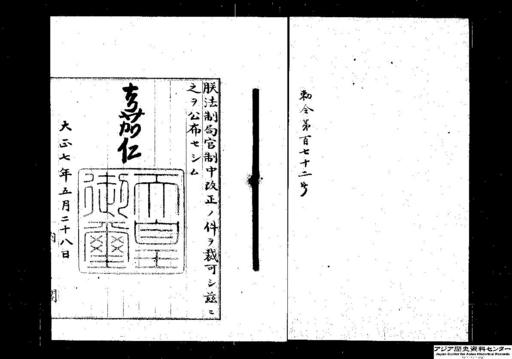 勅令第百七十二号
朕法制局官制中改正ノ件ヲ裁可シ茲ニ
之ヲ公布セシム
嘉仁
天皇御璽
大正七年五月二十八日
内閣
アジア歴史資料センター
Japan Center for Asian Historical Records